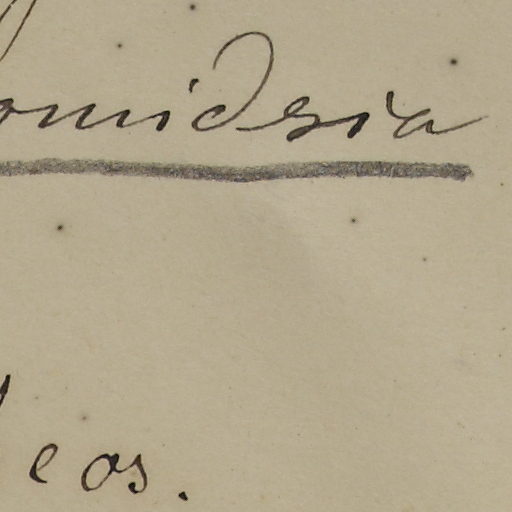 omidria
eos.